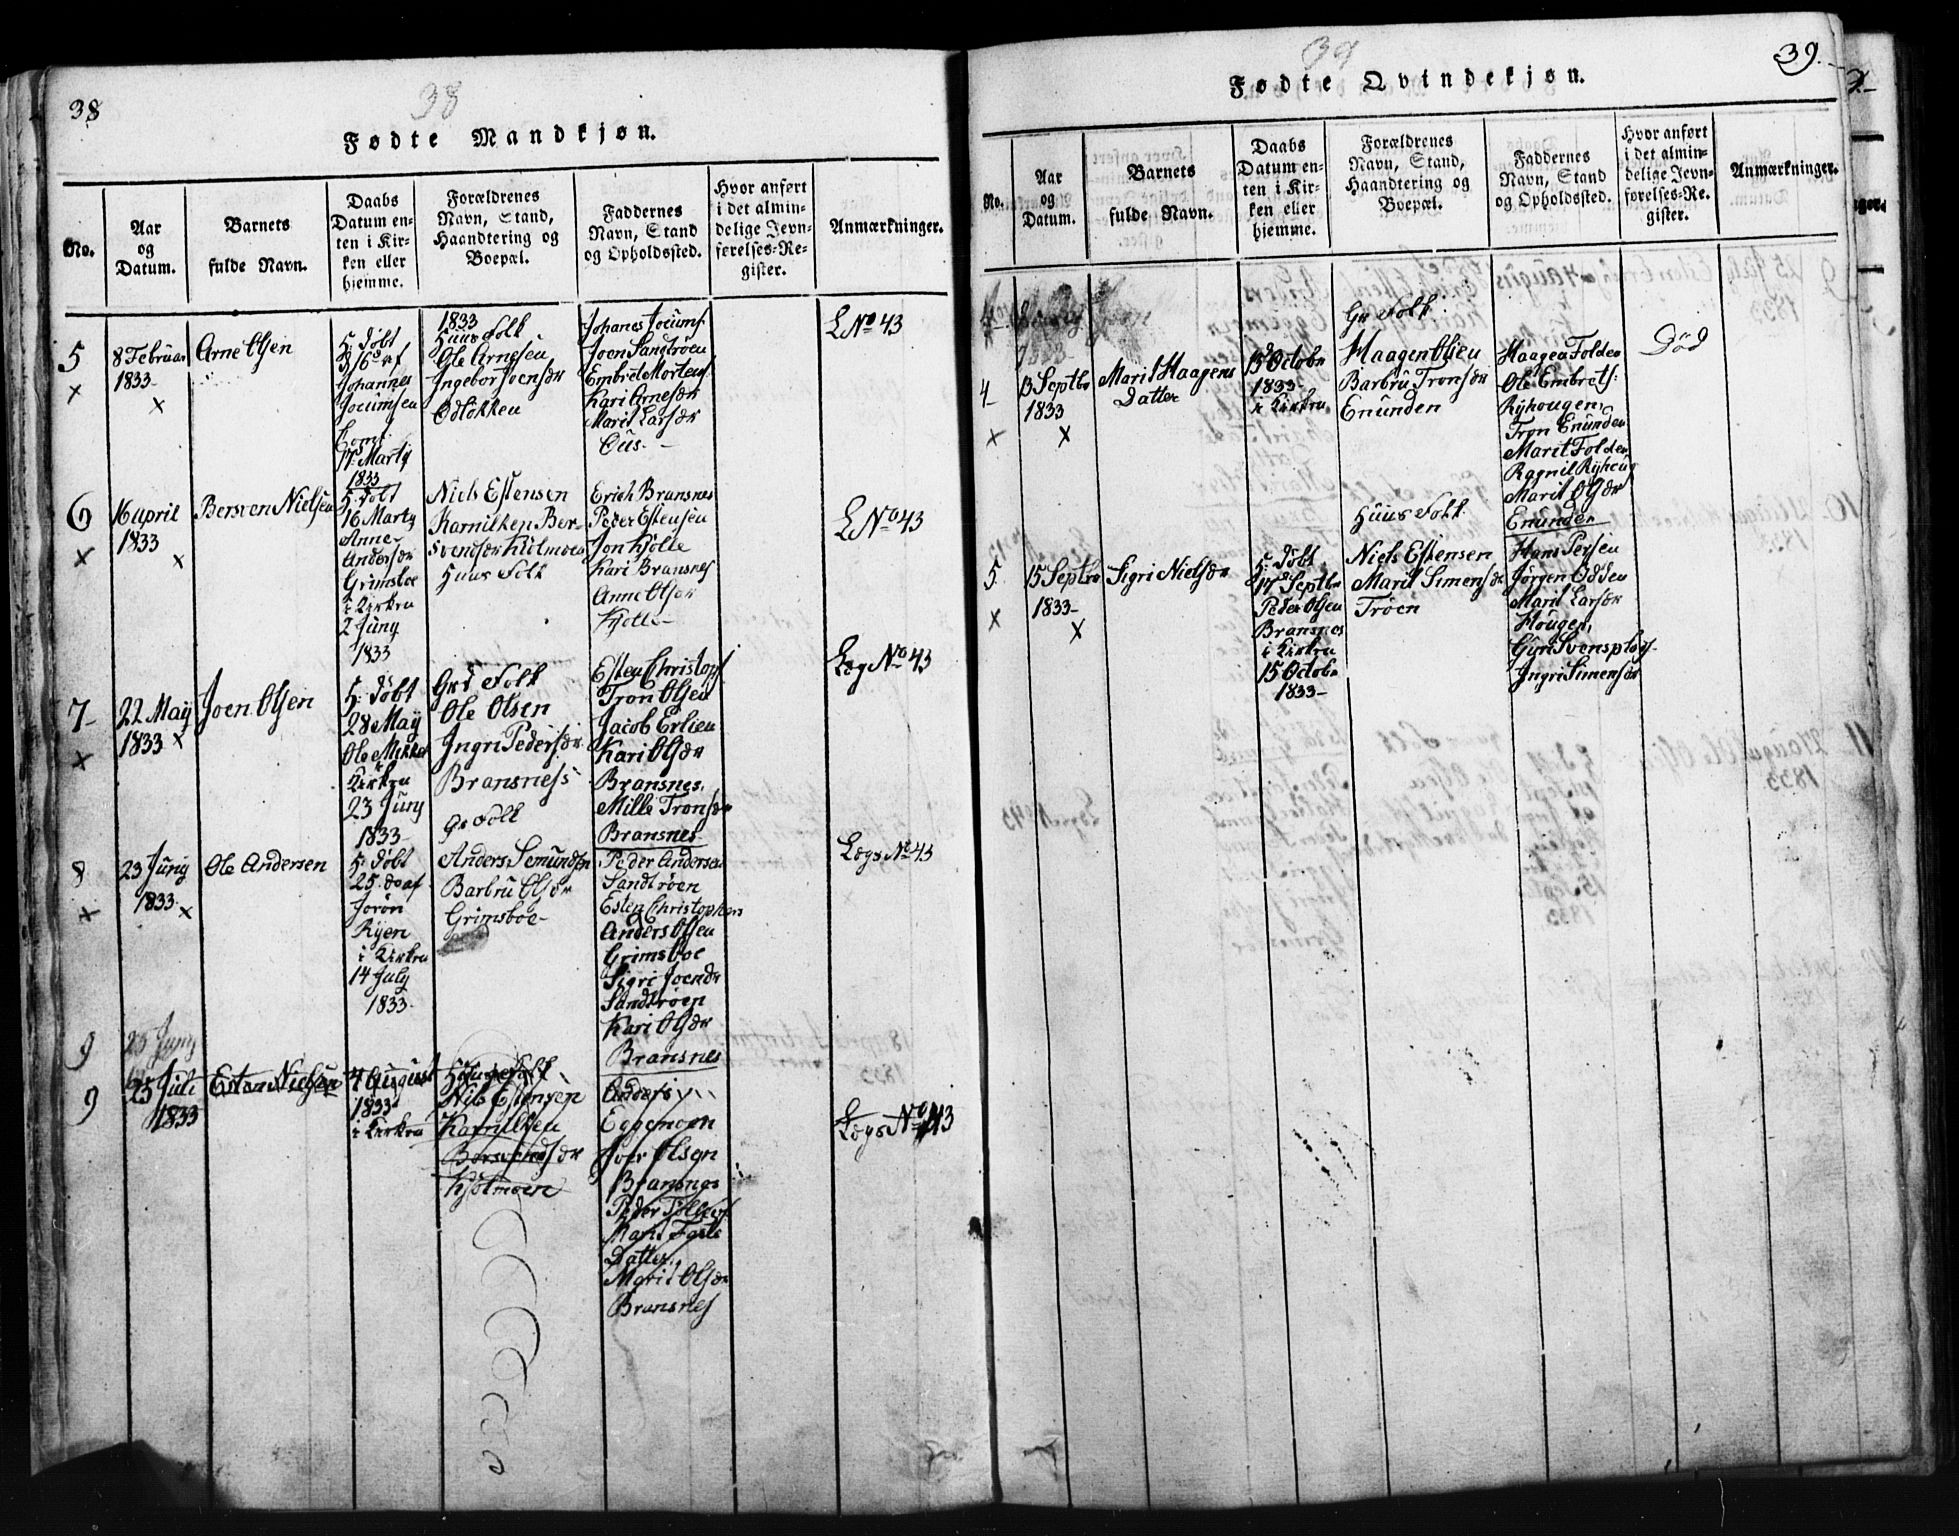 38
38
Fødte Mandkjøn.
No.
Aar
og
Datum.
Barnets
fulde Navn.
Daabs
Datum en-
ten i Kir-
ken eller
hjemme.
Forældrenes
Navn, Stand,
Haandtering og
Boepæl.
Faddernes
Navn, Stand
og Opholdssted.
Hvor anført
i det almin-
delige Jevn-
førelses-Re-
gister.
Anmærkninger.
5
8 Februar
1833-
Arne Olsen
H. døbt
Johannes
Jocumsen
17 Marty
1833
1833
Huus Folk
Ole Arnesen
Ingebor Joensdr
Ødløkken
Johanes Jocumss
Joen Sandtrøen
Embret Mortens
Kari Arnesdr
Marit Larsdr
Øus
L No 43
6
16 april
1833
Bersven Nielsen
H. døbt
16 Marty
Anne
Andersdr
Grimsboe
i Kirken
2 Juny
1833
Niels Estensen
Karnilken Ber-
svensdr Kiølmoen
Huus Folk
Erich Bransnes
Peder Estensen
Jon Kjølle
Kari Bransnes
Anne Olsdr
Kjølle
L No 43
7
22 Maÿ
1833
Joen Olsen
H. døbt
28 Maÿ
Ole Mikkel
i Kirken
23 Juny
1833
Grd Folk
Ole Olsen
Ingri Pedersdr
Bransness
Esten Christops
Tron Olsen
Jacob Erlien
Kari Olsdr
Bransnes
Mille Tronsdr
Bransnes
Læg No 43
8
23 Juny
1833
Ole Andersen
H. døbt
25. do af
Jorøn
Ryen
i Kirken
14 July
1833
Gr Folk
Anders Semundsen
Barbru Olsdr
Grimsboe
Peder Andersen
Sandtrøen
Esten Christophers
Anders Olsen
Grimsboe
Sigri Joensdr
Sandtrøen
Kari Olsdr
Bransnes
Lægs No 43
9
23 Juny
9
25 Juli
1833
Esten Nielsen
4 August
1833
i Kirken
Nils Estensen
Karnilken
Bersvendsdr
Kjølmoen
Anders
Eggemoen
Iver Olsen
Bransnes
Peder Tollefs
Marit
Datter
Marit Olsdr
Bransnes
Lægs No 43
39
39.
Fødte Qvindekjøn.
No.
Aar
og
Datum.
Barnets
fulde Navn.
Daabs
Datum en-
ten i Kir-
ken eller
hjemme.
Forældrenes
Navn, Stand,
Haandtering og
Boepæl.
Faddernes
Navn, Stand
og Opholdssted.
Hvor anført
i det almin-
delige Jevn-
førelses-Re-
gister.
Anmærkninger.
4
4
13 Septbr
1833
Marit Haagens
Datter
13 Octobr
1833
i Kirken
Gr Folk
Haagen Olsen
Barbru Tronsdr
Enunden
Haagen Folden
Ole Embrets:
Ryhougen,
Tron Enunden
Marit Folden
Ragnil Ryhoug
Marit Olsdr
Enunden
Død
5
15 Septbr
1833
Sigri Nielsdr
H. døbt
17 Septbr
Peder Olsen
Bransnes
i Kirken
15 Octobr
1833
Huus Folk
Niels Estensen
Marit Simensdr
Trøen
Hans Persen
Jørgen Odden
Marit Larsdr
Hougen,
Guri Svensplas
Ingri Simensdr